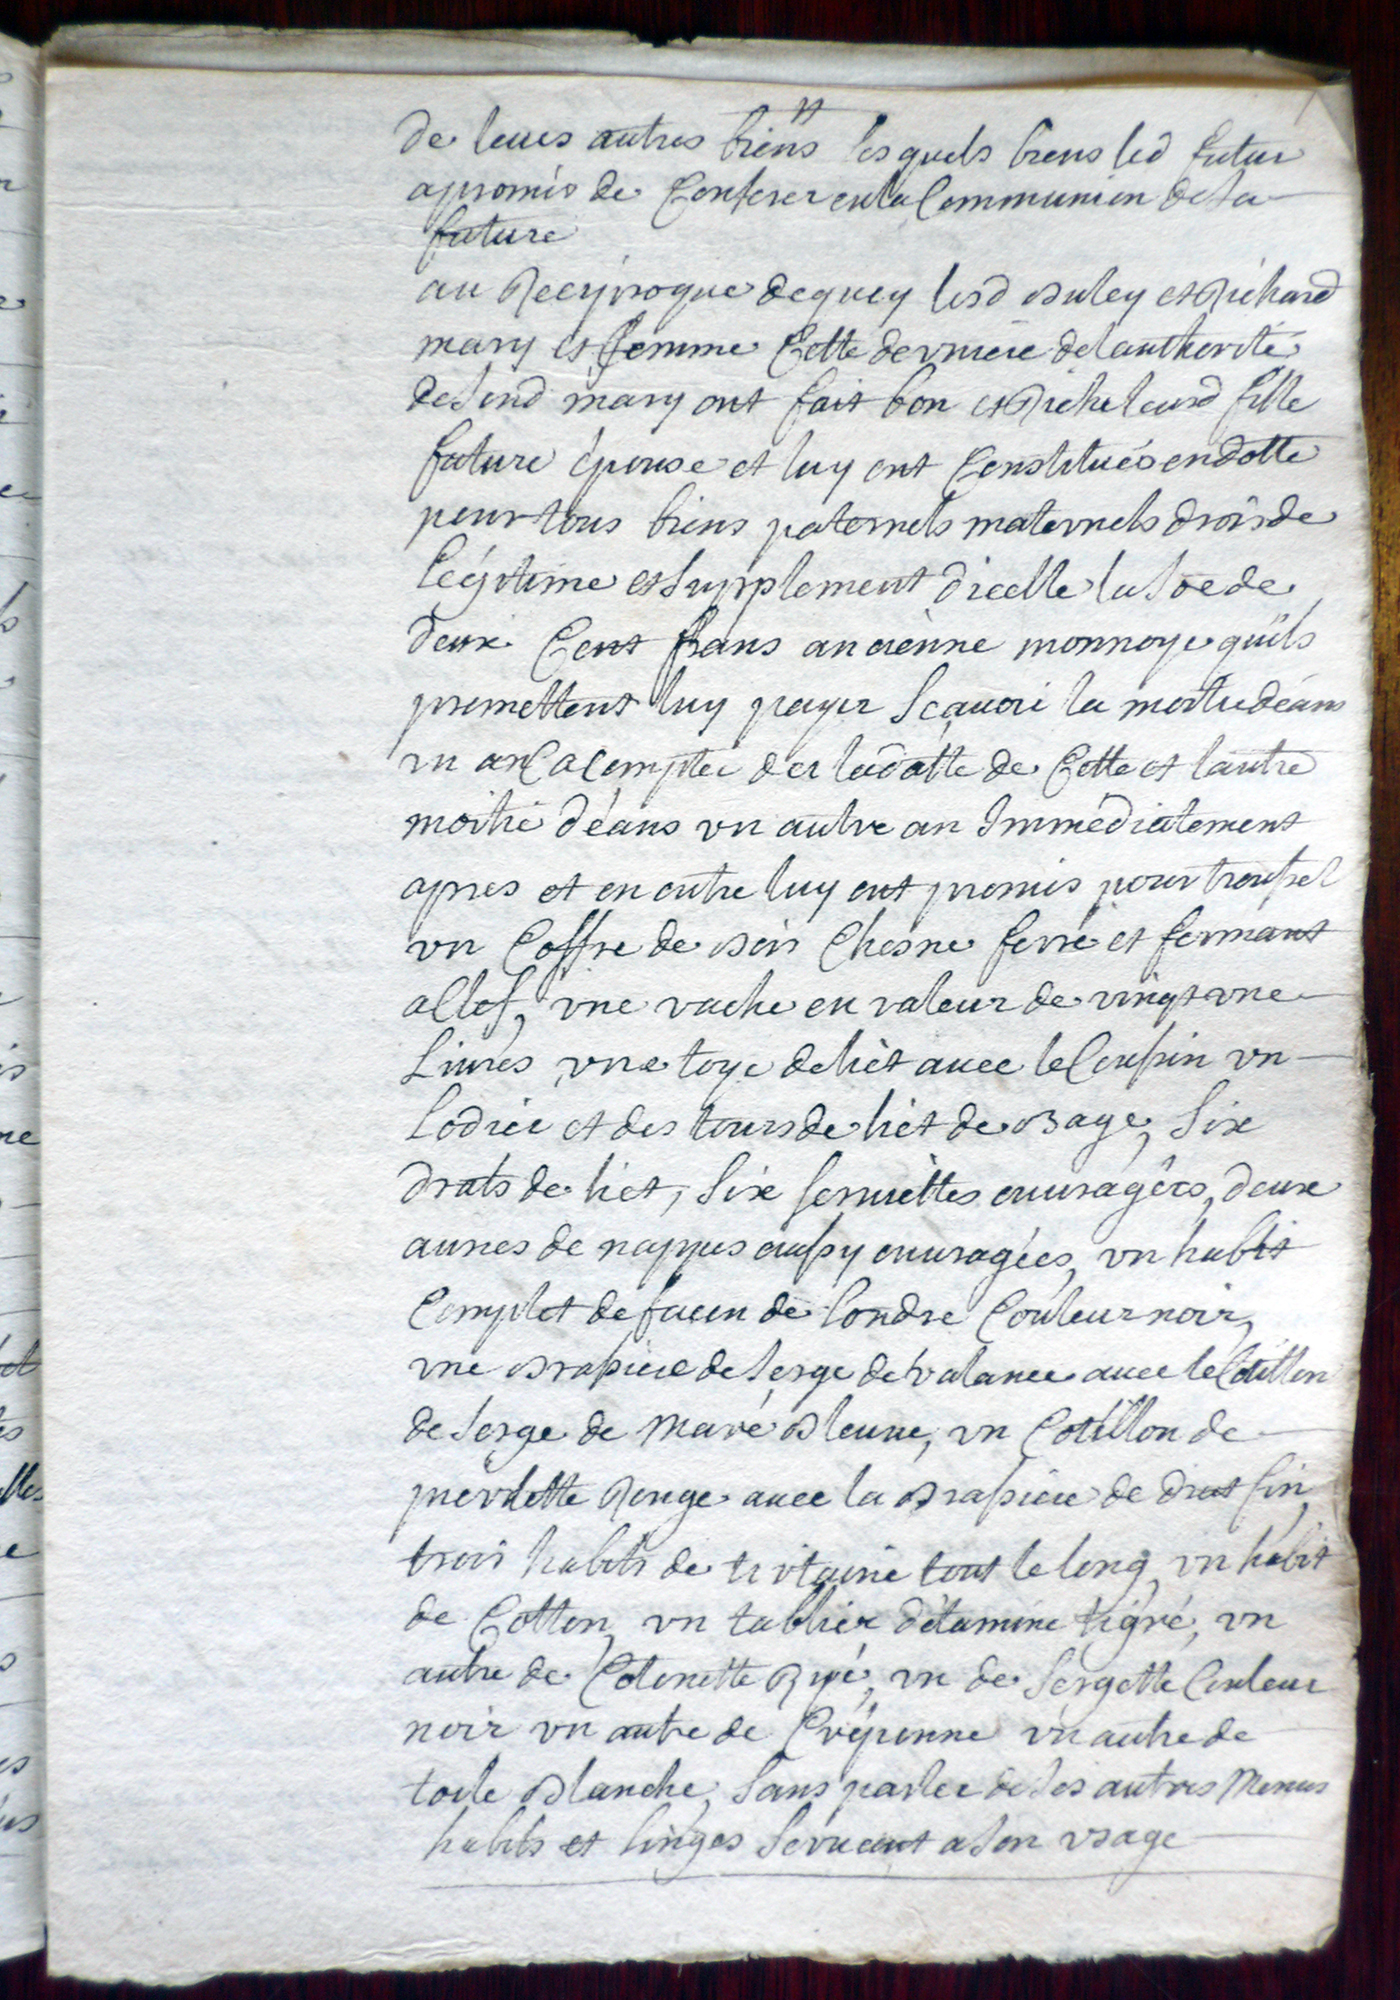 de leurs autres biens lesquels biens led futur
a promis de Conferer en la Communion de sa
future
au Reciproque dequoy lesd Buley et Richard
mary et femme Cette derniere de lauthorité
de sond mary ont fait bon et Riche leurd fille
future épouse et luy ont Constitués en dotte
pour tous biens paternels maternels drois de
Légitime et supplement dicelle la soe de
deux Cent frans ancienne monnoye quils
promettent luy payer scauoir la moitie déans
vn an a Compter des la datte de Cette et lautre
moitié déans vn autre an Immédiatement
apres et en outre luy ont promis pour troussel
vn Coffre de bois Chesne ferré et fermant
a Clef, vne vache en valeur de vingt vne
Liures vne toye de liet auec le Coussin vn
Lodier et des tours de liet de Bage, six
drats de liet, six seruiettes ouuragées, deux
aunes de nappes aussy ouuragées, vn habit
Complet de facon de londre Couleur noir,
vne Brassiere de serge de valance auec le Cotillon
de serge de Mavé Bleuue, vn Cotillon de
Rouge auec la Brassiere de drat fin,
trois habits de tiretaine tout le long, vn habit
de Cotton, vn tablier détamine tigré, vn
autre de Cotonette Ryé, vn de sergette Couleur
noir vn autre de Créponne vn autre de
toile Blanche, sans parler de ses autres Menus
habits et linges seruant a son vsage